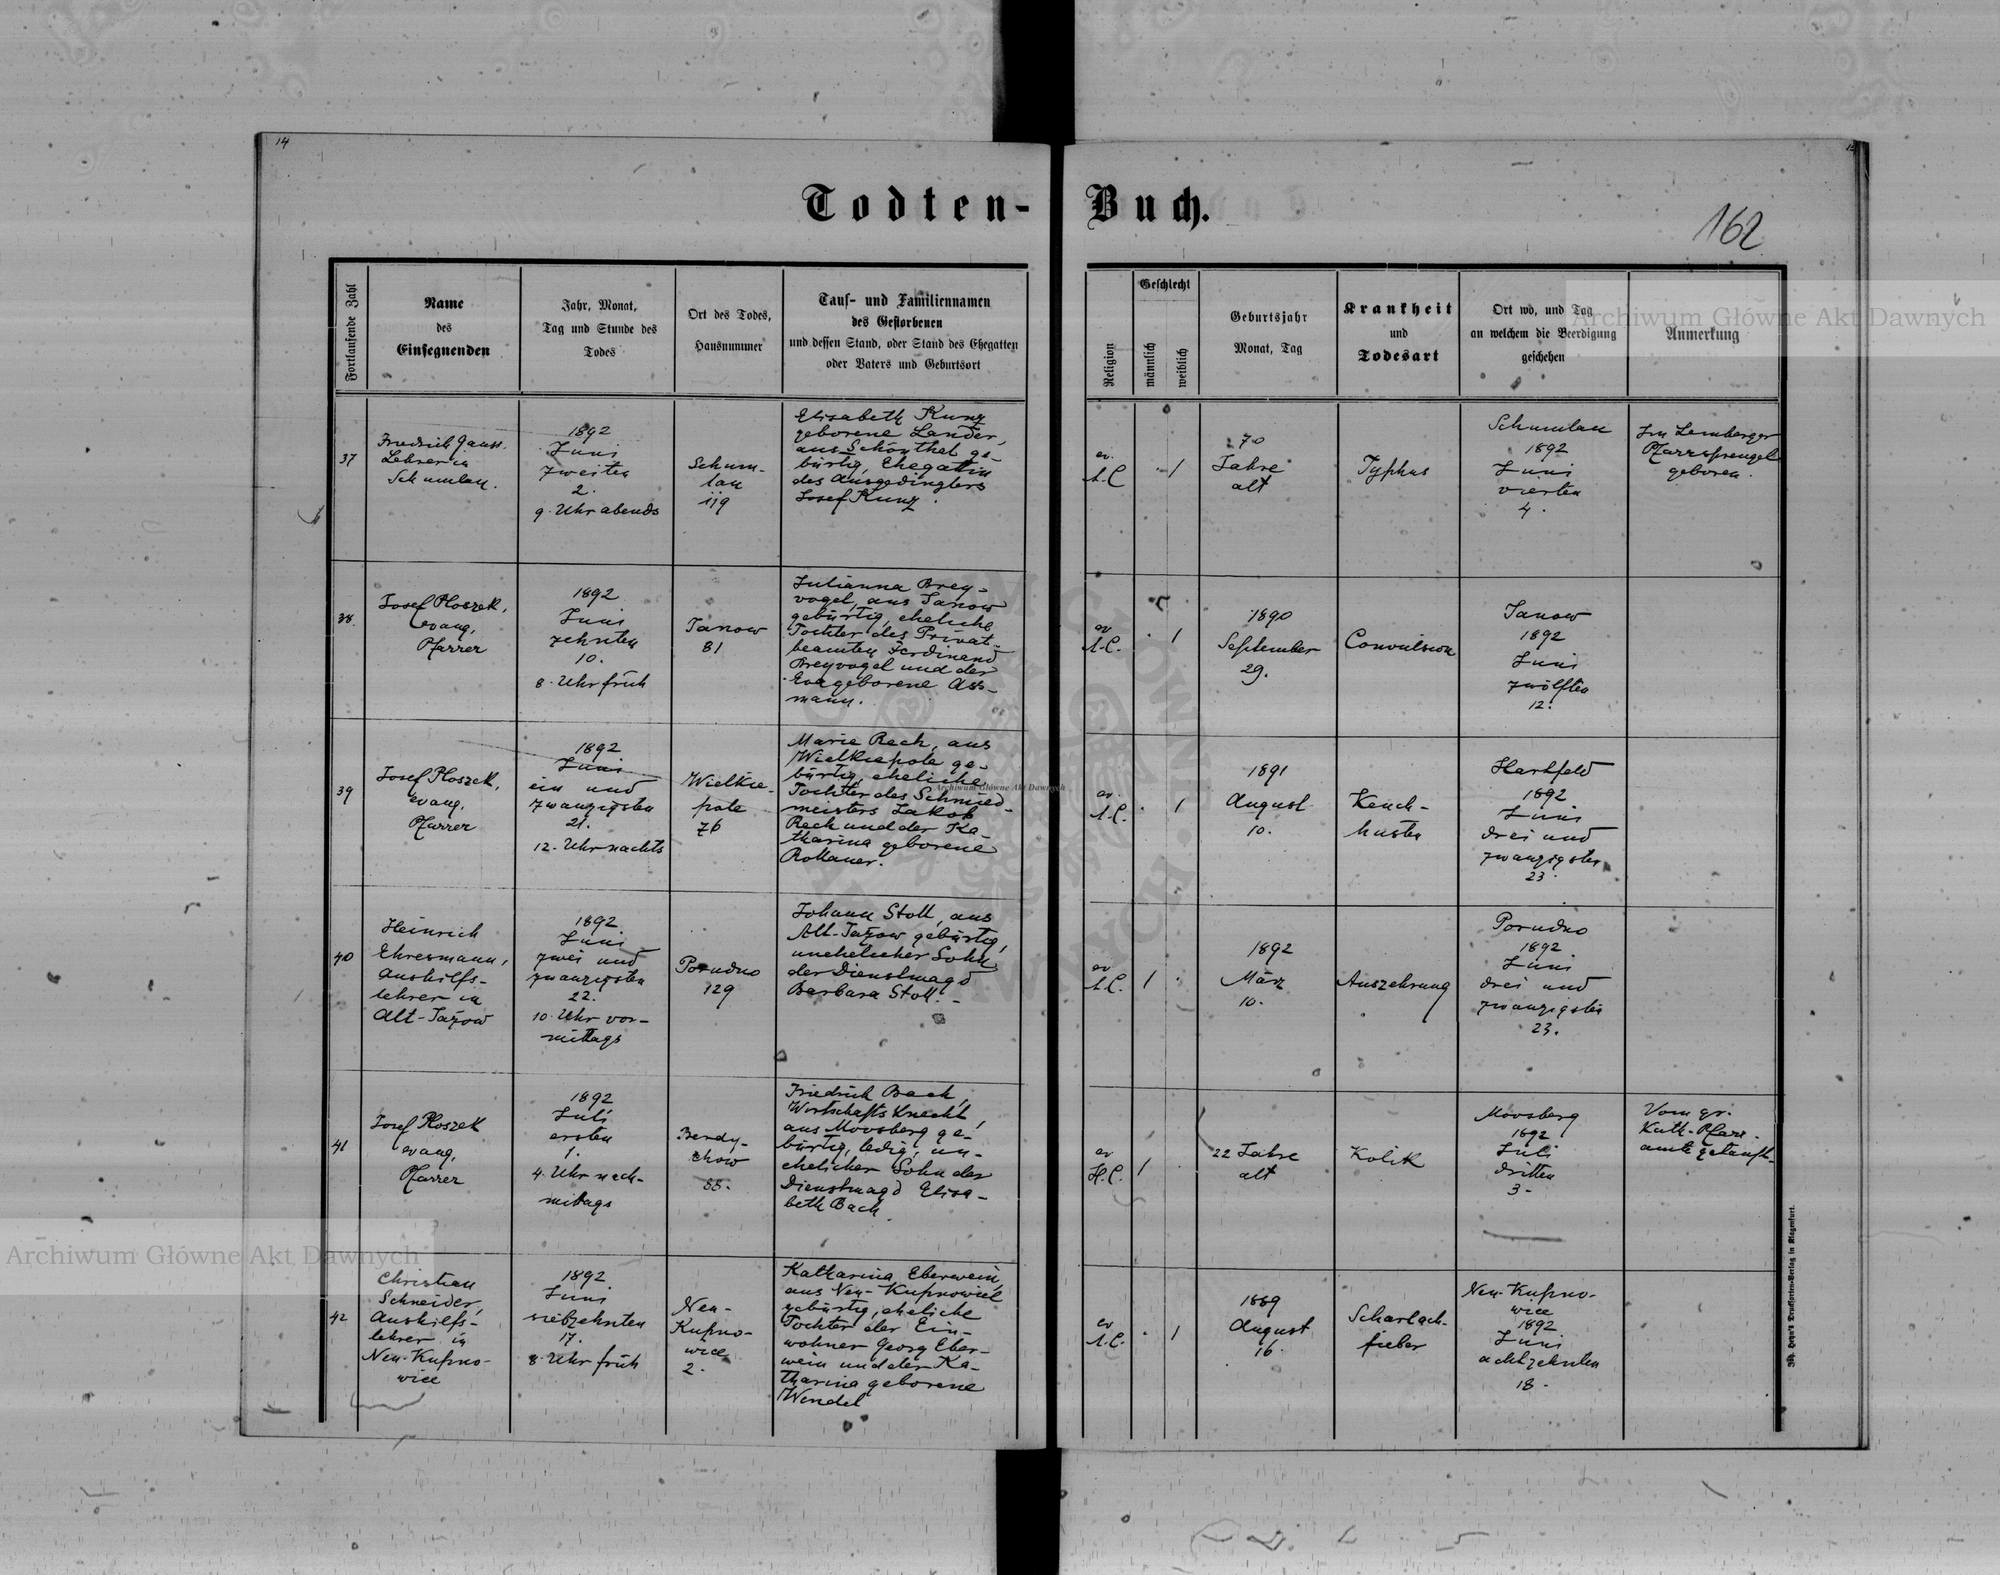 14
Todten-Buch.
162
Fortlaufende Zahl
Name
des
Einsegnenden
Jahr, Monat,
Tag und Stunde des
Todes
Ort des Todes,
Hausnummer
Tauf- und Familiennamen
des Gestorbenen
und dessen Stand, oder Stand des Ehegatten
oder Vaters und Geburtsort
Religion
Geschlecht
männlich
weiblich
Geburtsjahr
Monat, Tag
Krankheit
und
Todesart
Ort wo, und Tag
an welchem die Beerdigung
geschehen
Anmerkung
37
Friedrich Gauss.
Lehrer in
Schumlau.
1892
Juni
zweiten
2.
9. Uhr abends
Schum-
lau
119
Elisabeth Kunz
geborene Lander,
aus Schönthal ge-
bürtig, Ehegattin
des Ausgedinglers
Josef Kunz.
ev.
A.C
1
70
Jahre
alt
Typhus
Schumlau
1892
Juni
vierten
4.
Im Lemberger
Pfarrsprengel
geboren.
38.
Josef Ploszek,
evang.
Pfarrer
1892
Juni
zehnten
10.
8. Uhr früh
Janow
81
Julianna Brey-
vogel, aus Janow
gebürtig, eheliche
Tochter des Privat-
beamten Ferdinand
Breyvogel und der
Eva geborene Ass-
mann.
ev
A.C.
1
1890
September
29.
Convulsion
Janow
1892
Juni
zwölften
12.
39
Josef Ploszek,
evang.
Pfarrer
1892
Juni
ein und
zwanzigsten
21.
12. Uhr nachts
Wielkie-
pole
76
Marie Rech, aus
Wielkiepole ge-
bürtig, eheliche
Tochter des Schmied-
meisters Jakob
Rech und der Ka-
tharina geborene
Rollauer.
ev.
A.C.
1
1891
August
10.
Keuch-
husten
Hartfeld
1892
Juni
drei und
zwanzigsten
23.
40
Heinrich
Ehresmann,
Aushilfs-
lehrer in
Alt-Jażow
1892
Juni
zwei und
zwanzigsten
22.
10. Uhr vor-
mittags
Porudno
129
Johann Stoll, aus
Alt-Jażow gebürtig,
unehelicher Sohn
der Dienstmagd
Barbara Stoll. -
ev
A.C.
1
1892
März
10.
Auszehrung
Porudno
1892
Juni
drei und
zwanzigsten
23.
41
Josef Ploszek
evang.
Pfarrer
1892
Juli
ersten
1.
4. Uhr nach-
mittags
Berdy-
chow
88.
Friedrich Bach,
Wirtschafts Knecht,
aus Moosberg ge-
bürtig, ledig, un-
ehelicher Sohn der
Dienstmagd Elisa-
beth Bach.
ev
H.C.
1
22 Jahre
alt
Kolik
Moosberg
1892
Juli
dritten
3 -
Vom gr.
Kath. Pfarr-
amte getauft.
42
Christian
Schneider,
Aushilfs-
lehrer in
Neu-Kupno-
wice
1892
Juni
siebzehnten
17.
8. Uhr früh
Neu-
Kupno-
wice
2.
Katharina Eberwein,
aus Neu-Kupnowice
gebürtig, eheliche
Tochter der Ein-
wohner Georg Eber-
wein und der Ka-
tharina geborene
Wendel
ev
A.C.
1
1889
August
16.
Scharlach-
fieber
Neu-Kupno-
wice
1892
Juni
achtzehnten
18.
Archiwum Główne Akt Dawnych
Archiwum Główne Akt Dawnych
Archiwum Główne Akt Dawnych